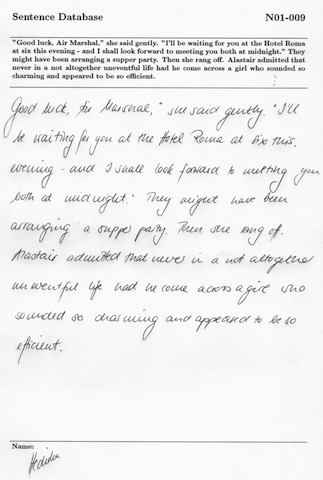 Sentence Database N01-009
"Good luck, Air Marshal," she said gently. "I'll be waiting for you at the Hotel Roma
at six this evening - and I shall look forward to meeting you both at midnight." They
might have been arranging a supper party. Then she rang off. Alastair admitted that
never in a not altogether uneventful life had he come across a girl who sounded so
charming and appeared to be so efficient.
Good luck, Air Marshal," she said gently. "I'll
be waiting for you at the Hotel Roma at six this
evening - and I shall look forward to meeting you
both at midnight." They might have been
arranging a supper party. Then she rang off.
Alastair admitted that never in a not altogether
uneventful life had he come across a girl who
sounded so charming and appeared to be so
efficient.
Name: